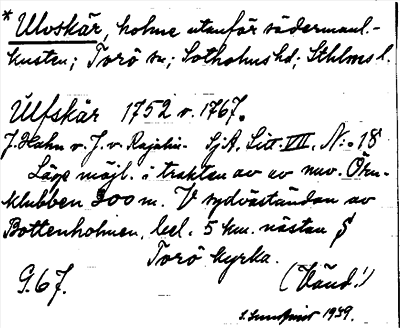 * Ulvskär, holme utanför södermanl.-
kusten; Torö sn; Sotholms hd; Sthlms l.
Ulfskär 1752 o. 1767.
J. Hahn o. J. v. Rajalin. SjA, Litt. VII. N:o 18
Läge möjl. i trakten av av nuv. Örn-
klubben 300 m. V sydväständan av
Bottenholmen, bel. 5 km. nästan S
Torö kyrka.
G. 67. (Vänd!)
1939.